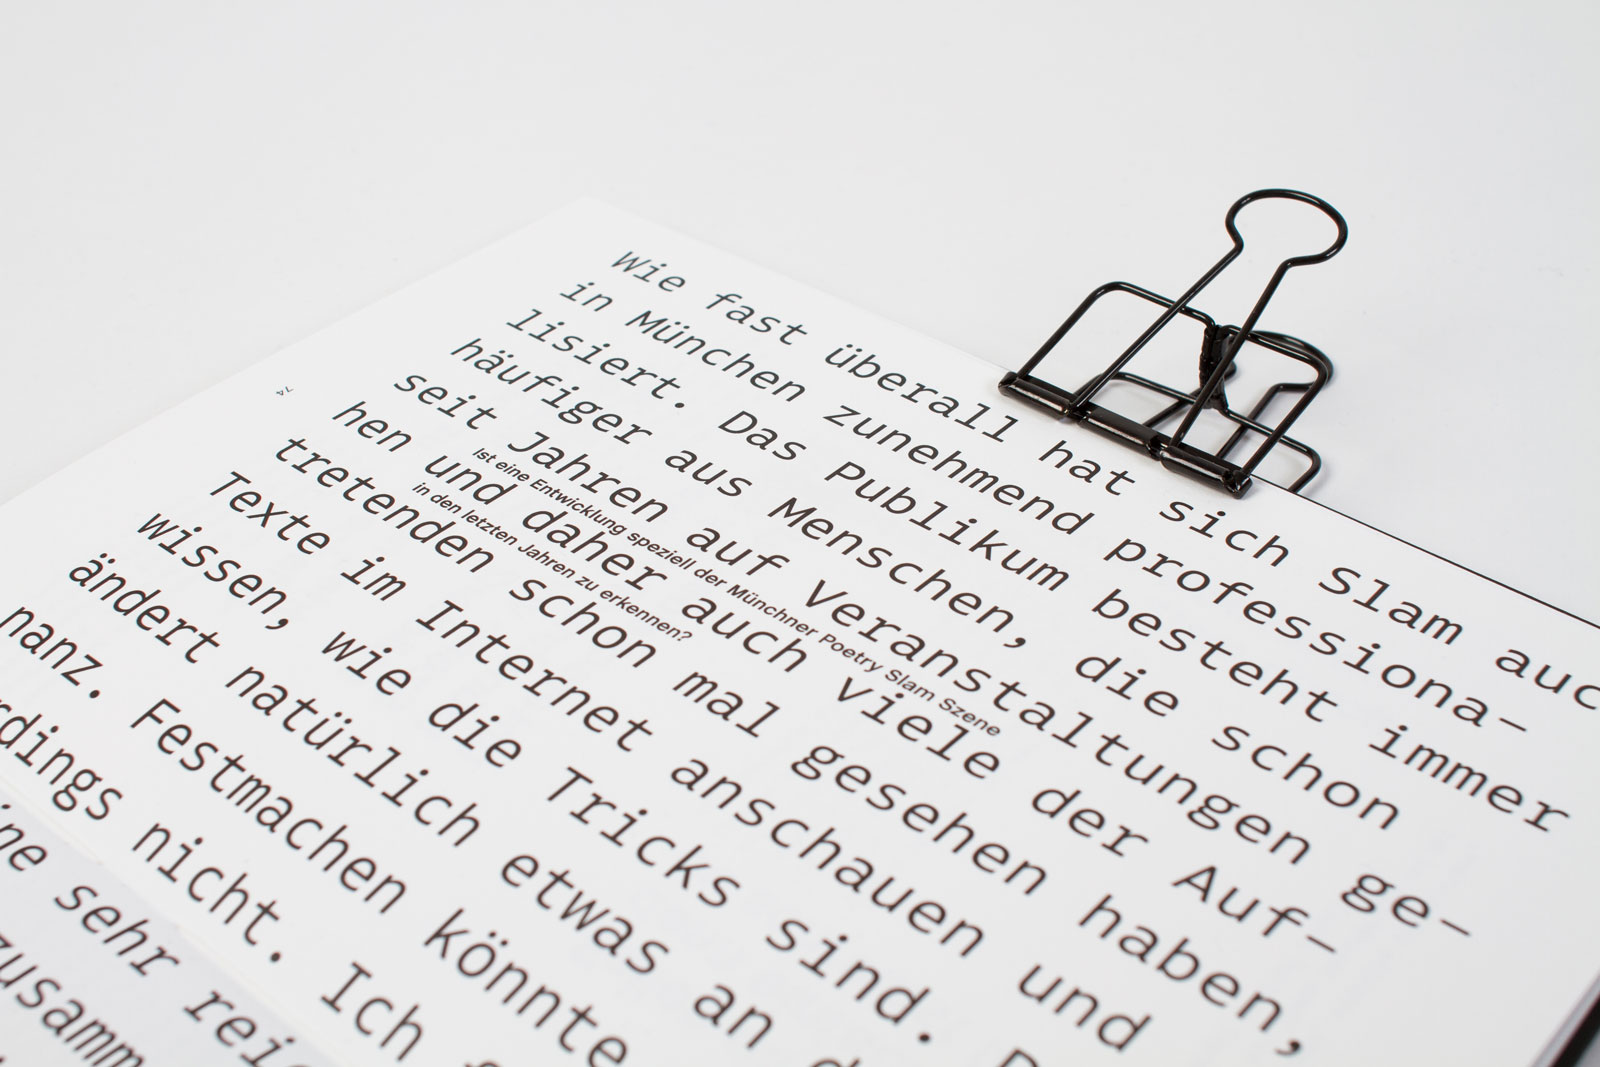 Wie fast überall hat sich Slam auc
in München zunehmend professiona-
lisiert. Das Publikum besteht immer
häufiger aus Menschen, die schon
seit Jahren auf Veranstaltungen ge-
hen und daher auch viele der Auf-
tretenden schon mal gesehen haben,
Texte im Internet anschauen und
wissen, wie die Tricks sind.
ändert natürlich etwas an
nanz. Festmachen könnte
rdings nicht. Ich
ne sehr reic
zusamm
Ist eine Entwicklung speziell der Münchner Poetry Slam Szene
in den letzten Jahren zu erkennen?
74